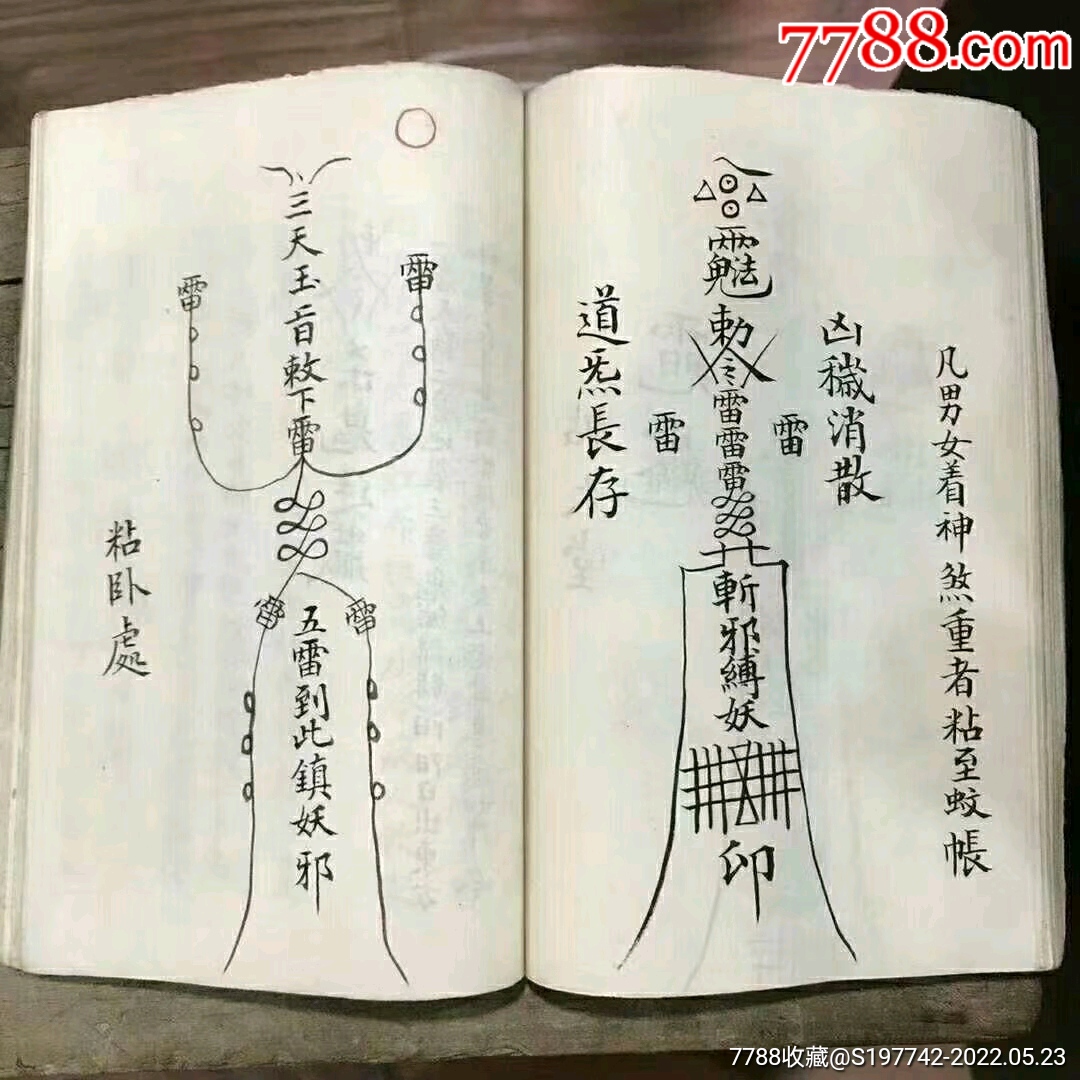 7788.com
凡男女着神煞重者粘至蚊帳
凶穢消散
勅令雷雷雷
雷
雷
斬邪縛妖
印
道炁長存
三天玉旨敕下雷
雷
雷
雷
雷
五雷到此鎮妖邪
粘卧處
7788收藏@S197742-2022.05.23